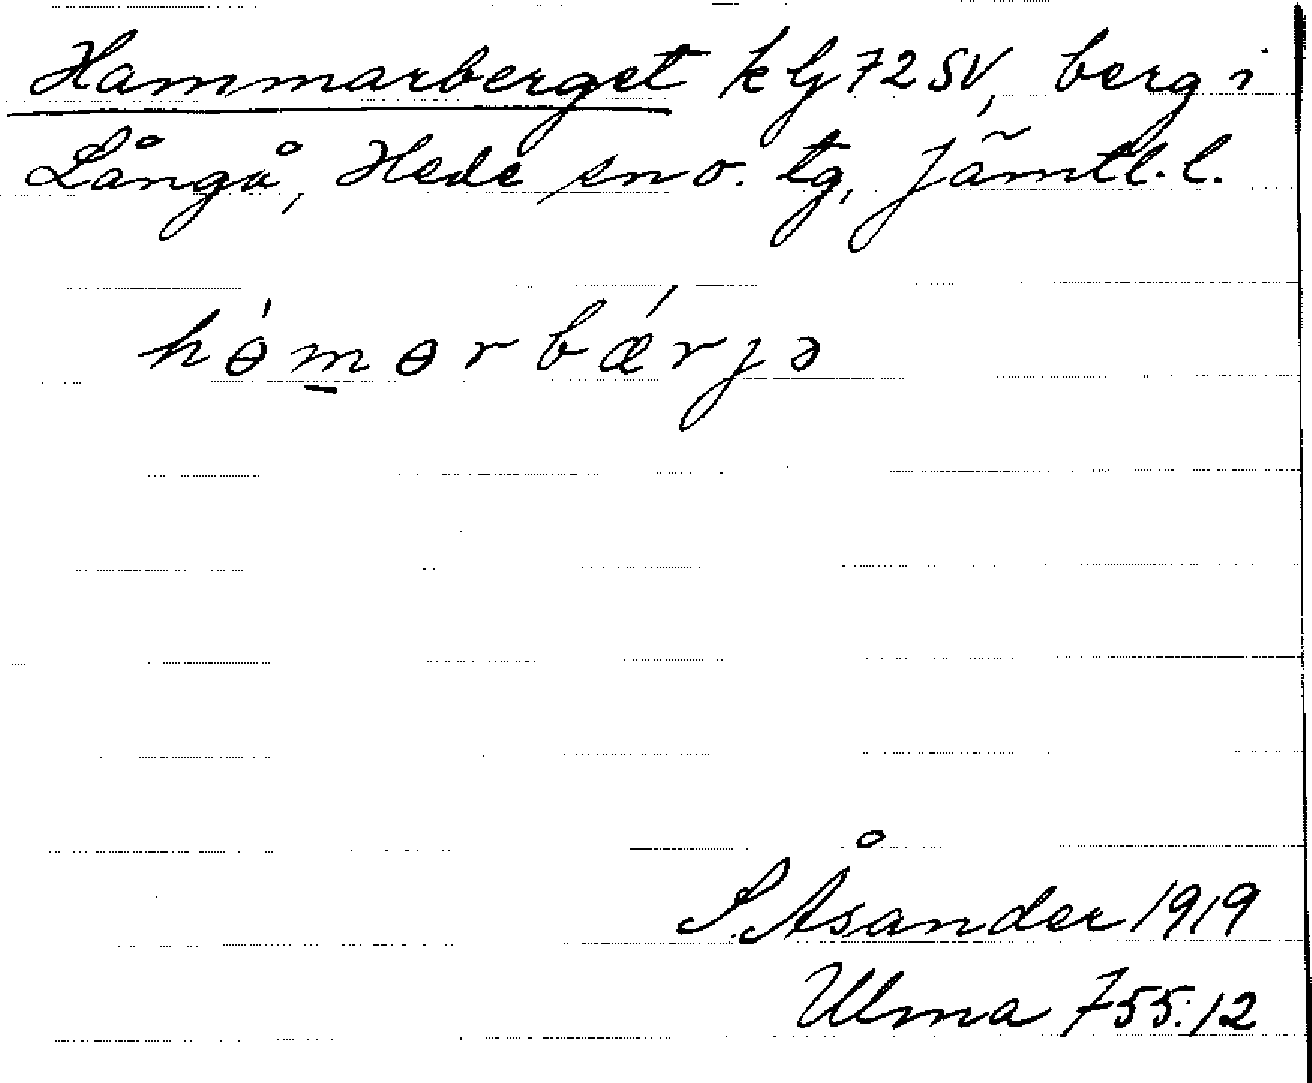 Hammarberget klj 72 SV, berg i
Långå, Hede sn o. tg, Jämtl. l.
hɵ́mɵrbǽrjə
S. Åsander 1919
Ulma 755:12